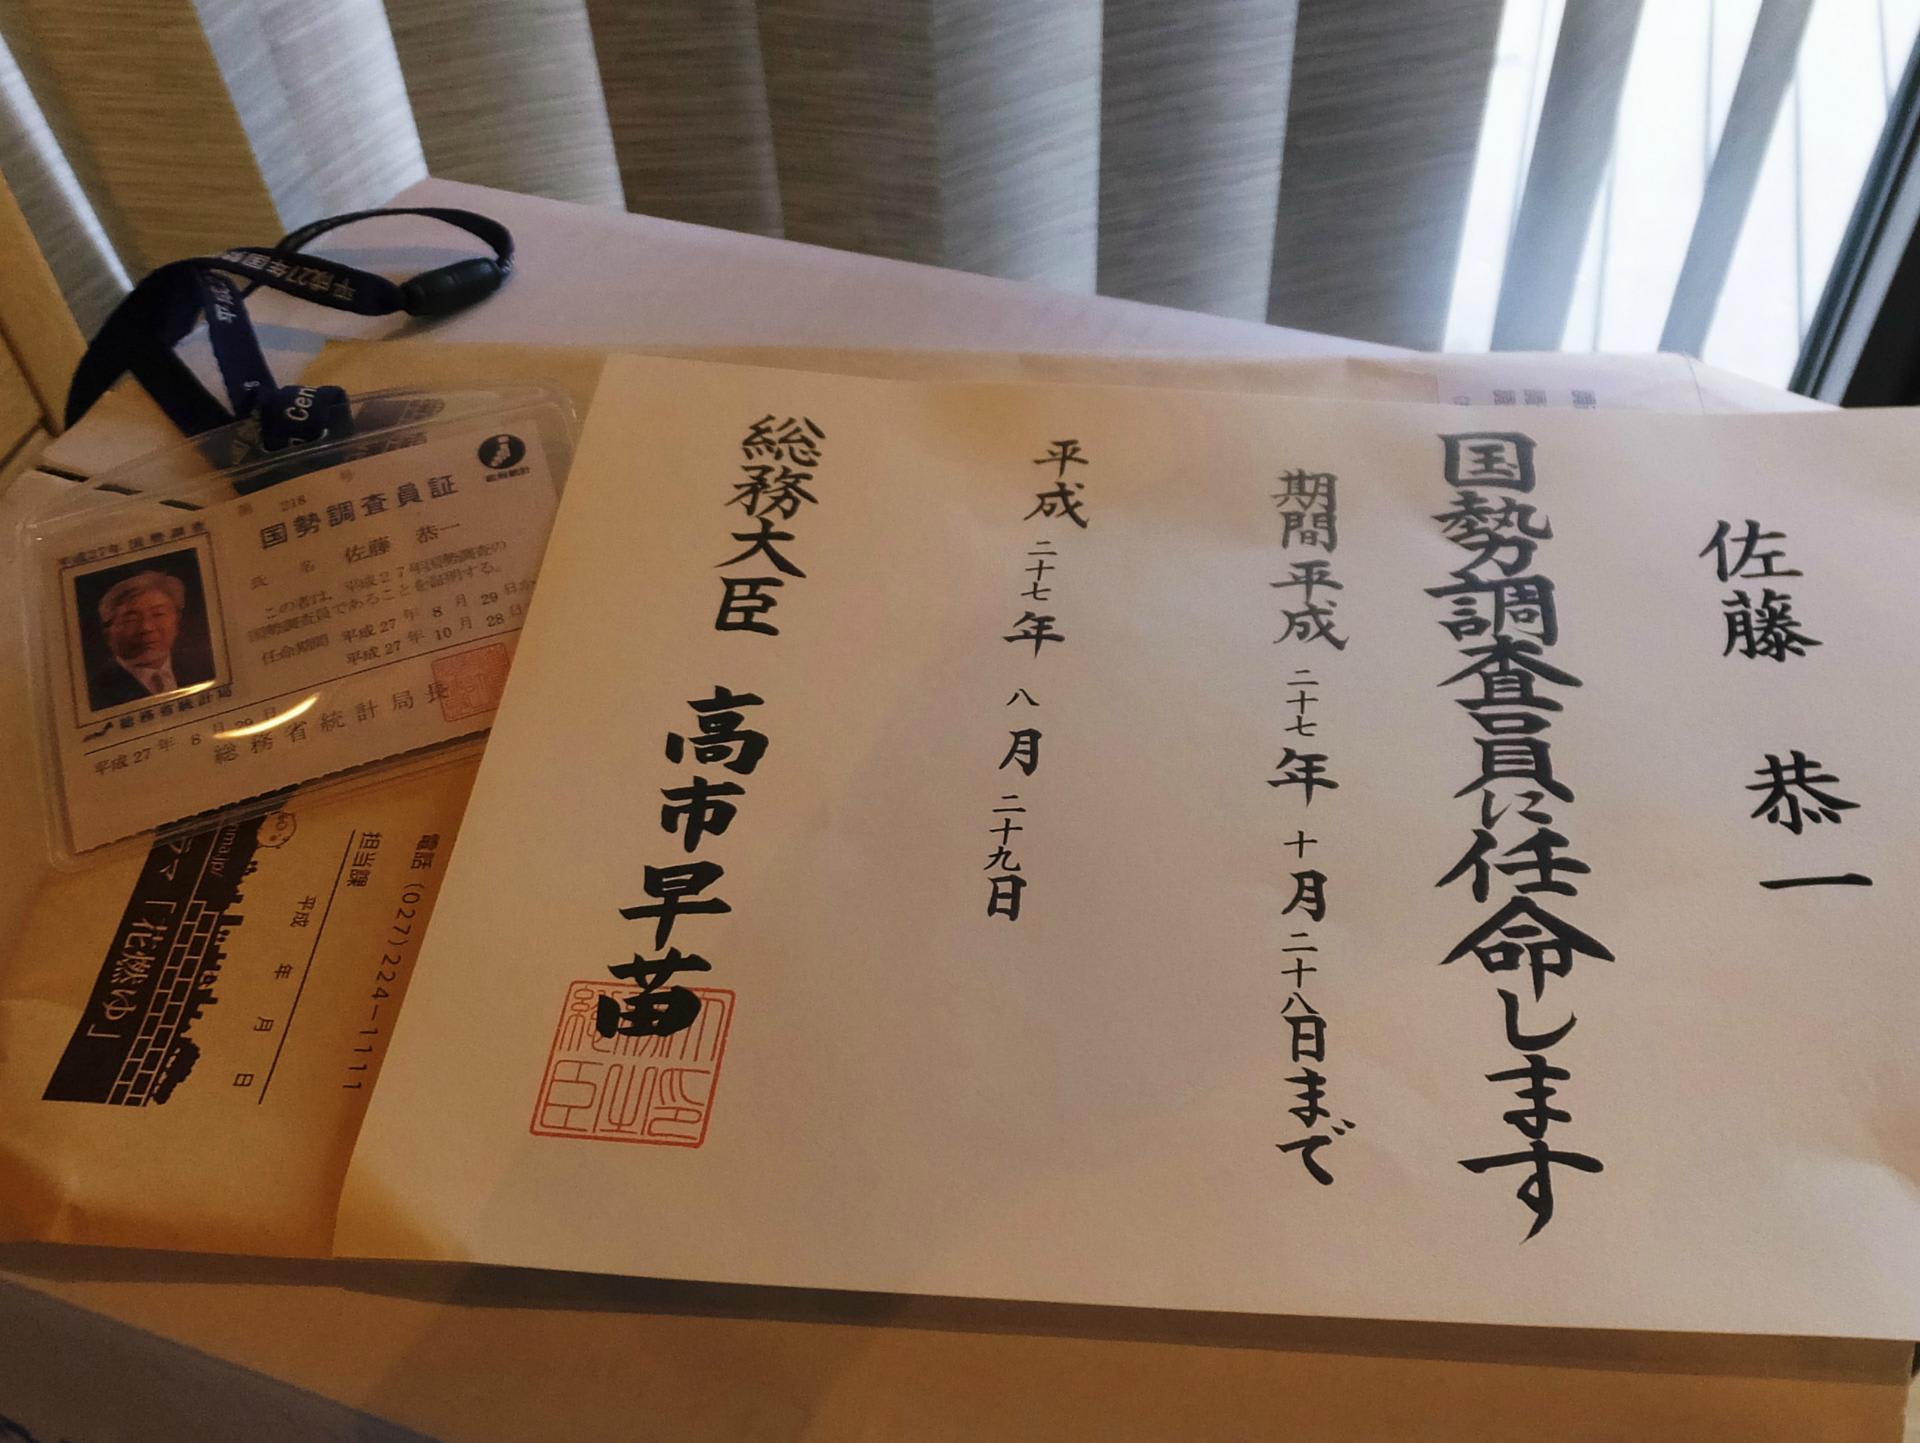 佐藤 恭一
国勢調査員に任命します
期間 平成二十七年十月二十八日まで
平成二十七年八月二十九日
総務大臣 高市早苗
平成27年国
Cen
第 218 号
国勢調査員証
氏名 佐藤 恭一
この者は、平成27年国勢調査の
国勢調査員であることを証明する。
任命期間 平成27年8月29日か
平成27年10月28日
平成27年 国勢調査
総務省統計局
平成27年8月29日
総務省統計局長
電話(027)224-1111
担当課
平成 年 月 日
「花燃ゆ」